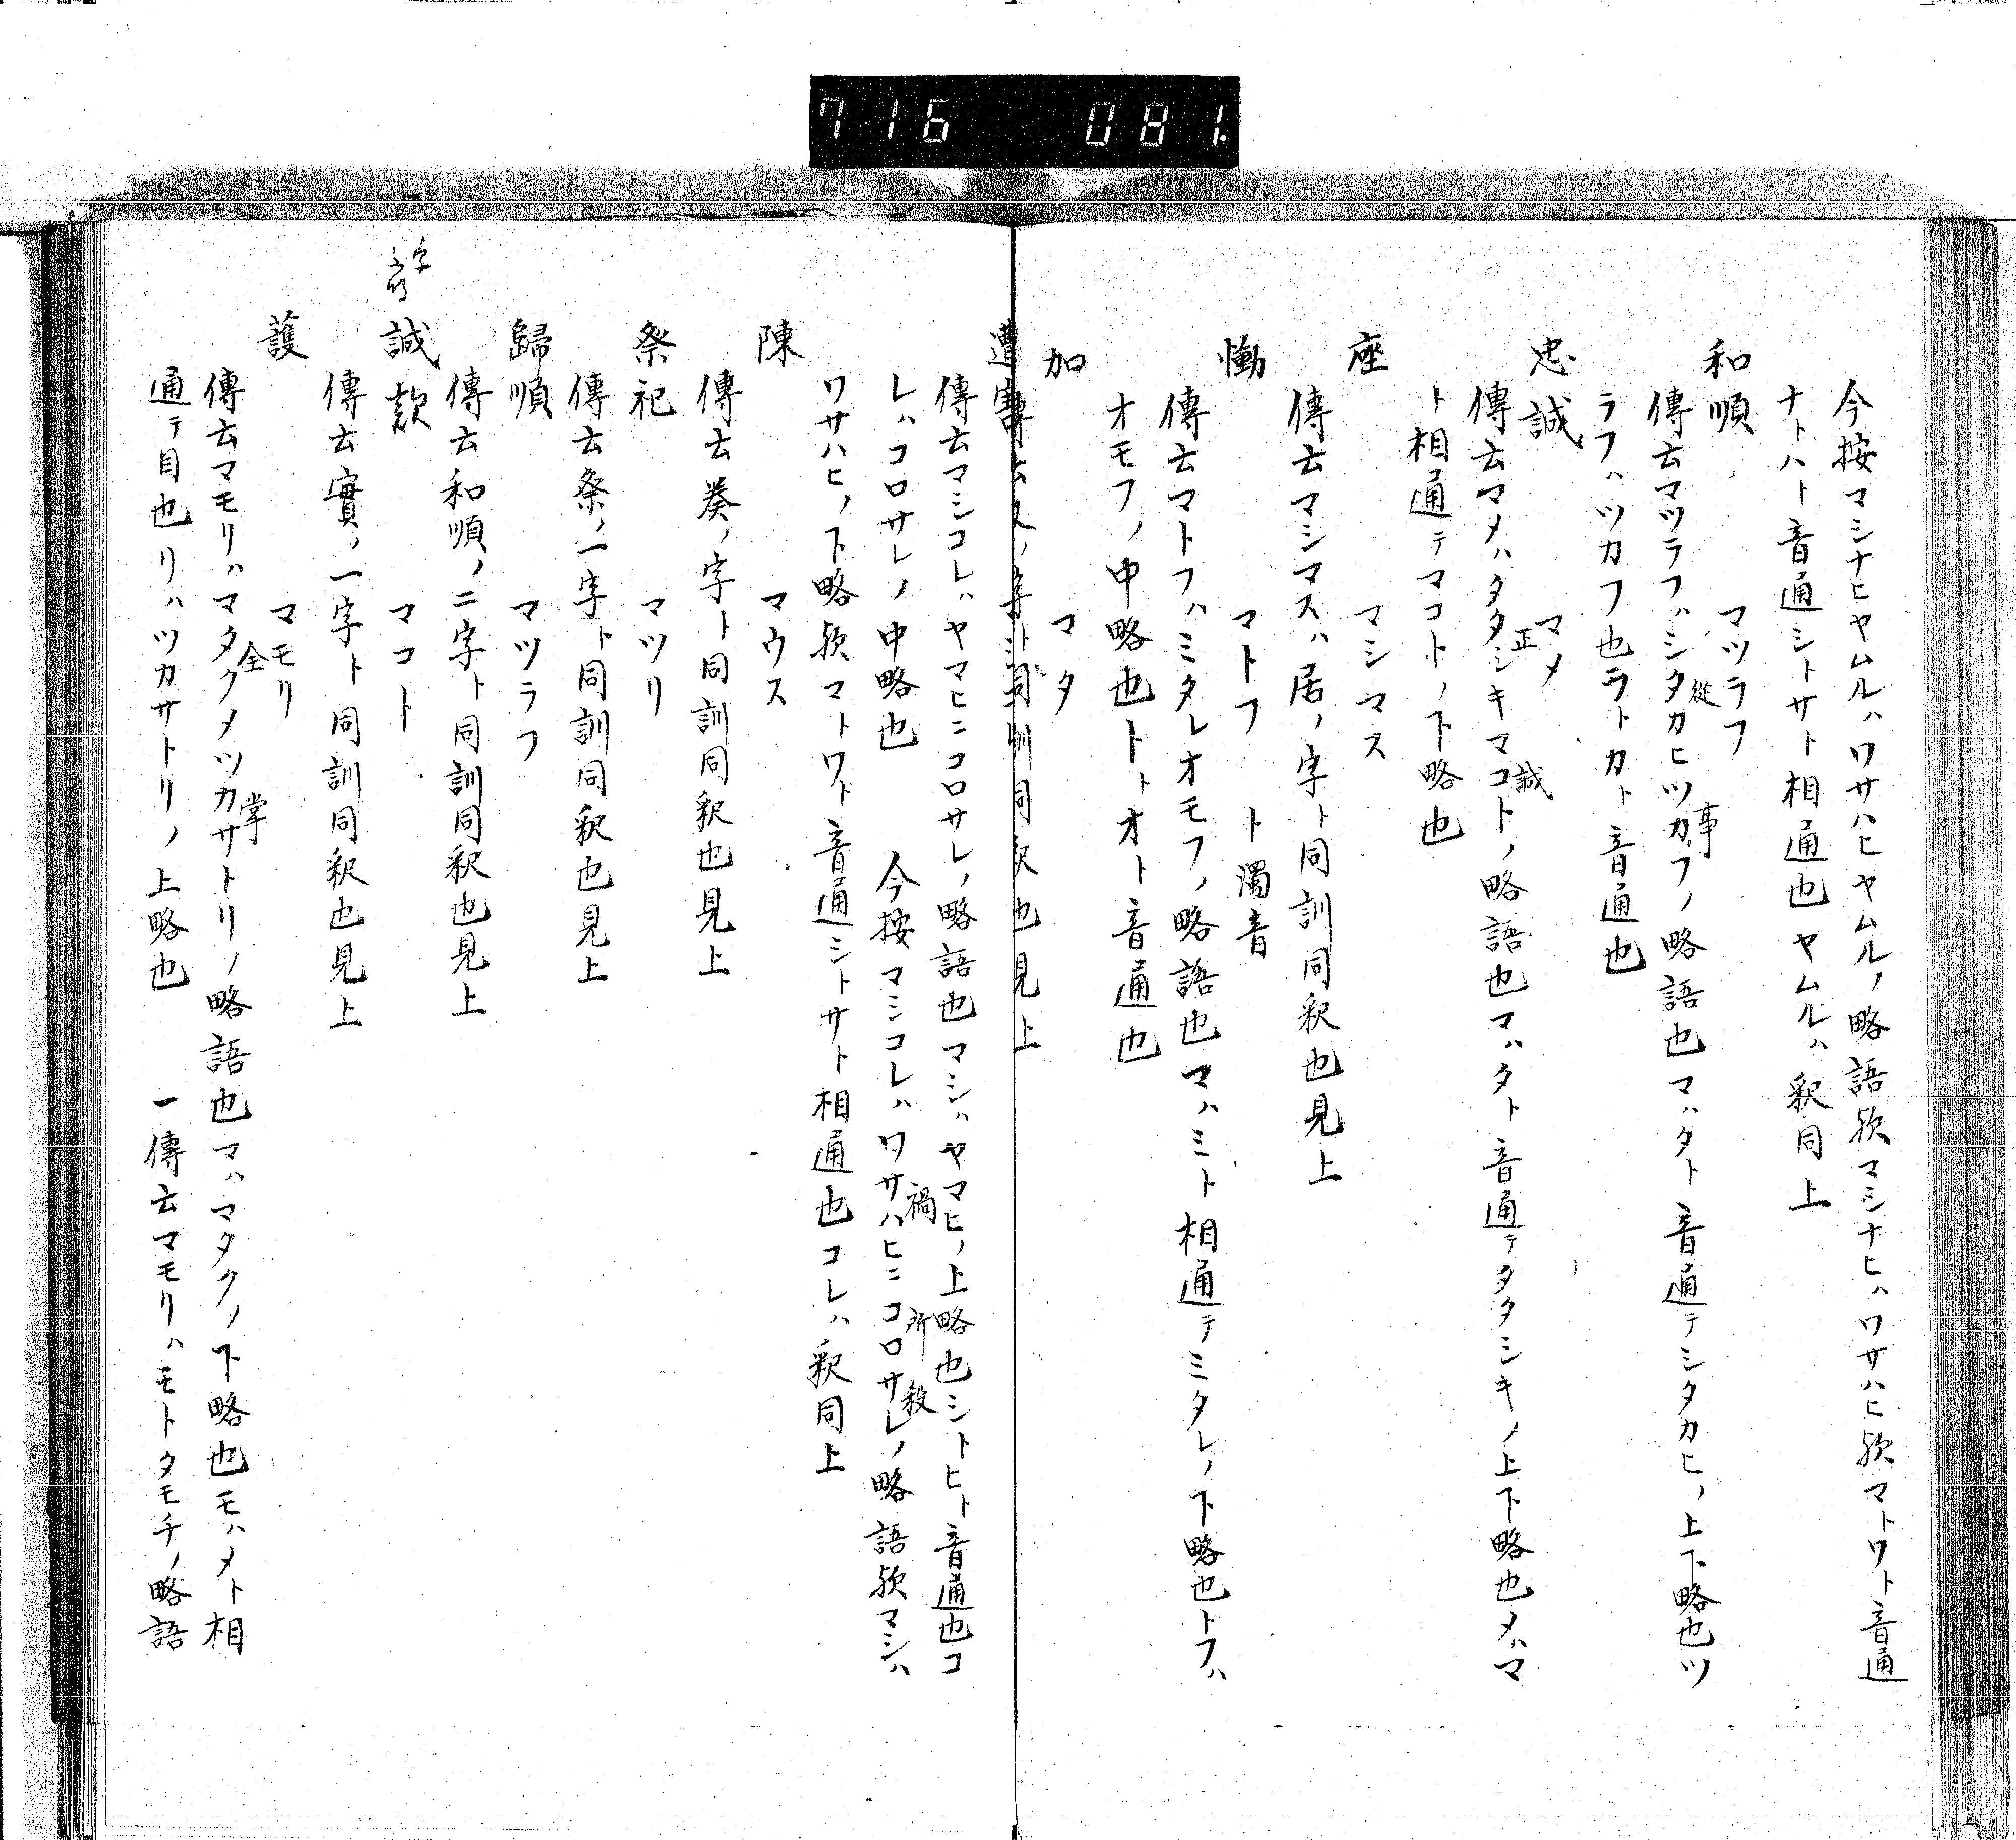 716 081.
今按マシナヒヤムルハワサハヒヤムルノ略語欤マシナヒハワサハヒ欤マトワト音通
ナトハト音通シトサト相通也ヤムルハ釈同上
和順 マツラフ
傳云マツラフハシタカヒツカフノ略語也マハタト音通テシタカヒノ上下略也ツ
從 事
ラフハツカフ也ラトカト音通也
忠誠 マメ
傳云マメハタタシキマコトノ略語也マハタト音通テタタシキノ上下略也メハマ
正 誠
ト相通テマコトノ下略也
座 マシマス
傳云マシマスハ居ノ字ト同訓同釈也見上
慟 マトフ ト濁音
傳云マトフハミタレオモフノ略語也マハミト相通テミタレノ下略也トフハ
オモフノ中略也トトオト音通也
加 マタ
傳云又ノ字ト同訓同釈也見上
遭害
傳云マシコレハヤマヒニコロサレノ略語也マシハヤマヒノ上略也シトヒト音通也コ
レハコロサレノ中略也 今按マシコレハワサハヒニコロサレノ略語欤マシハ
禍 所殺
ワサハヒノ下略欤マトワト音通シトサト相通也コレハ釈同上
陳 マウス
傳云奏ノ字ト同訓同釈也見上
祭祀 マツリ
傳云祭ノ一字ト同訓同釈也見上
歸順 マツラフ
傳云和順ノ二字ト同訓同釈也見上
誠款 マコト
傳云實ノ一字ト同訓同釈也見上
護 マモリ
傳云マモリハマタクメツカサトリノ略語也マハマタクノ下略也モハメト相
全 掌
通テ目也リハツカサトリノ上略也 一傳云マモリハモトタモチノ略語